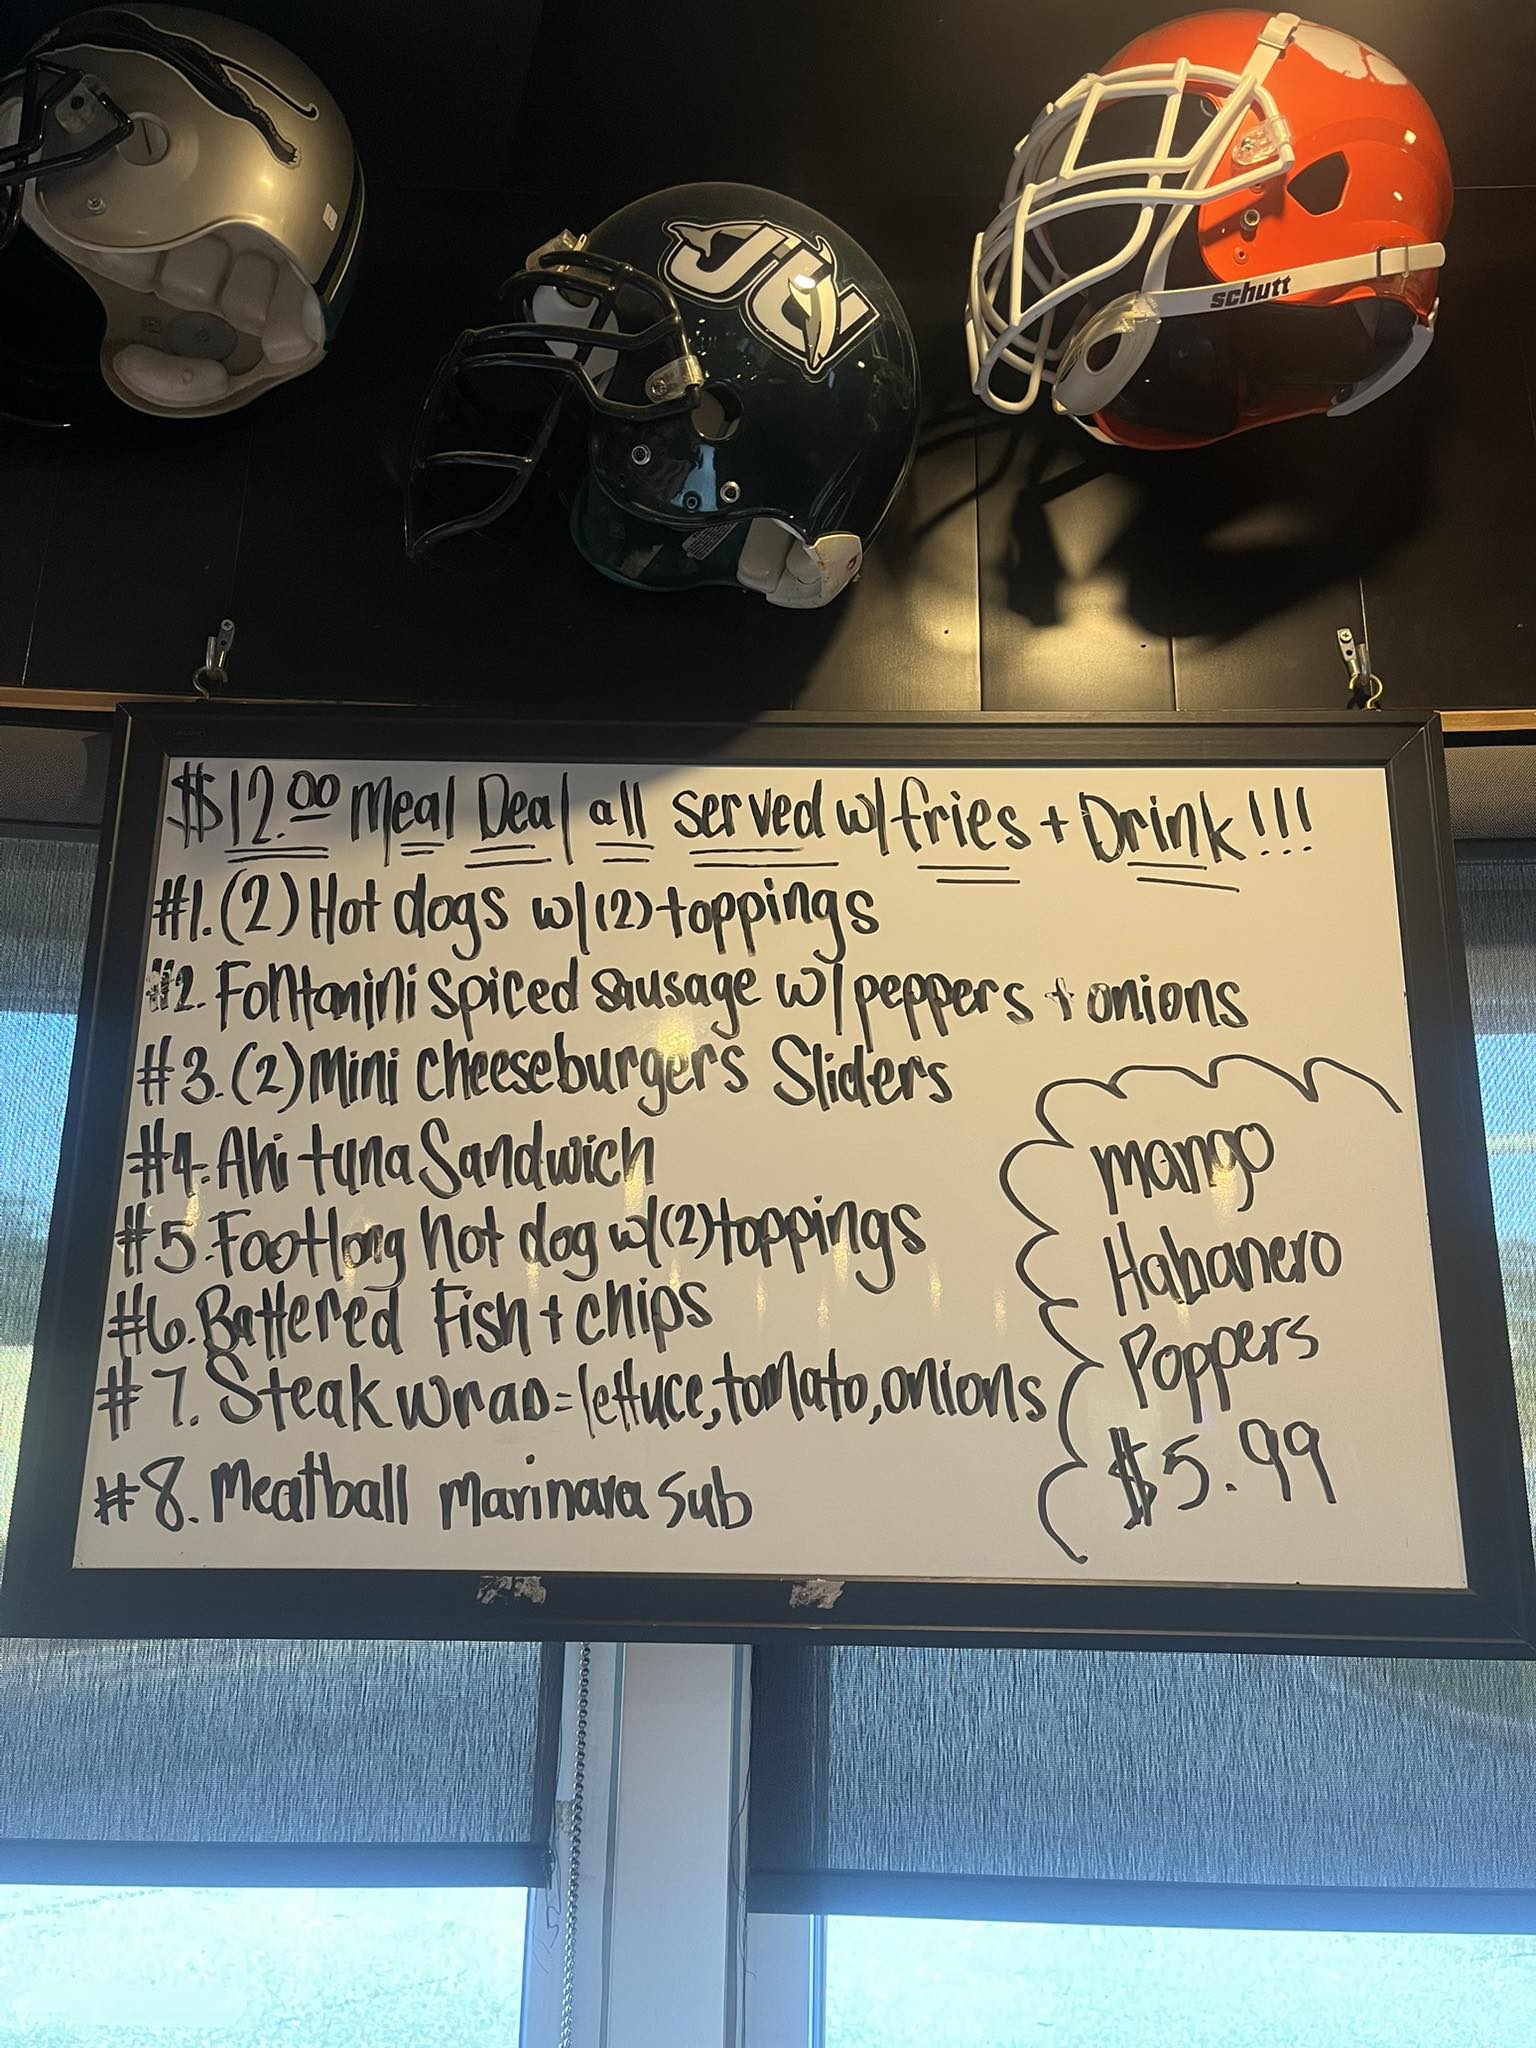 JU
schutt
$12.00 Meal Deal all served w/ fries + Drink!!!
#1. (2) Hot dogs w/ (2) toppings
#2. Fontanini spiced sausage w/ peppers + onions
#3. (2) Mini cheeseburgers Sliders
#4. Ahi tuna Sandwich
#5. Footlong hot dog w/ (2) toppings
#6. Battered Fish + chips
#7. Steak wrap = lettuce, tomato, onions
#8. Meatball Marinara Sub
mango
Habanero
Poppers
$5.99